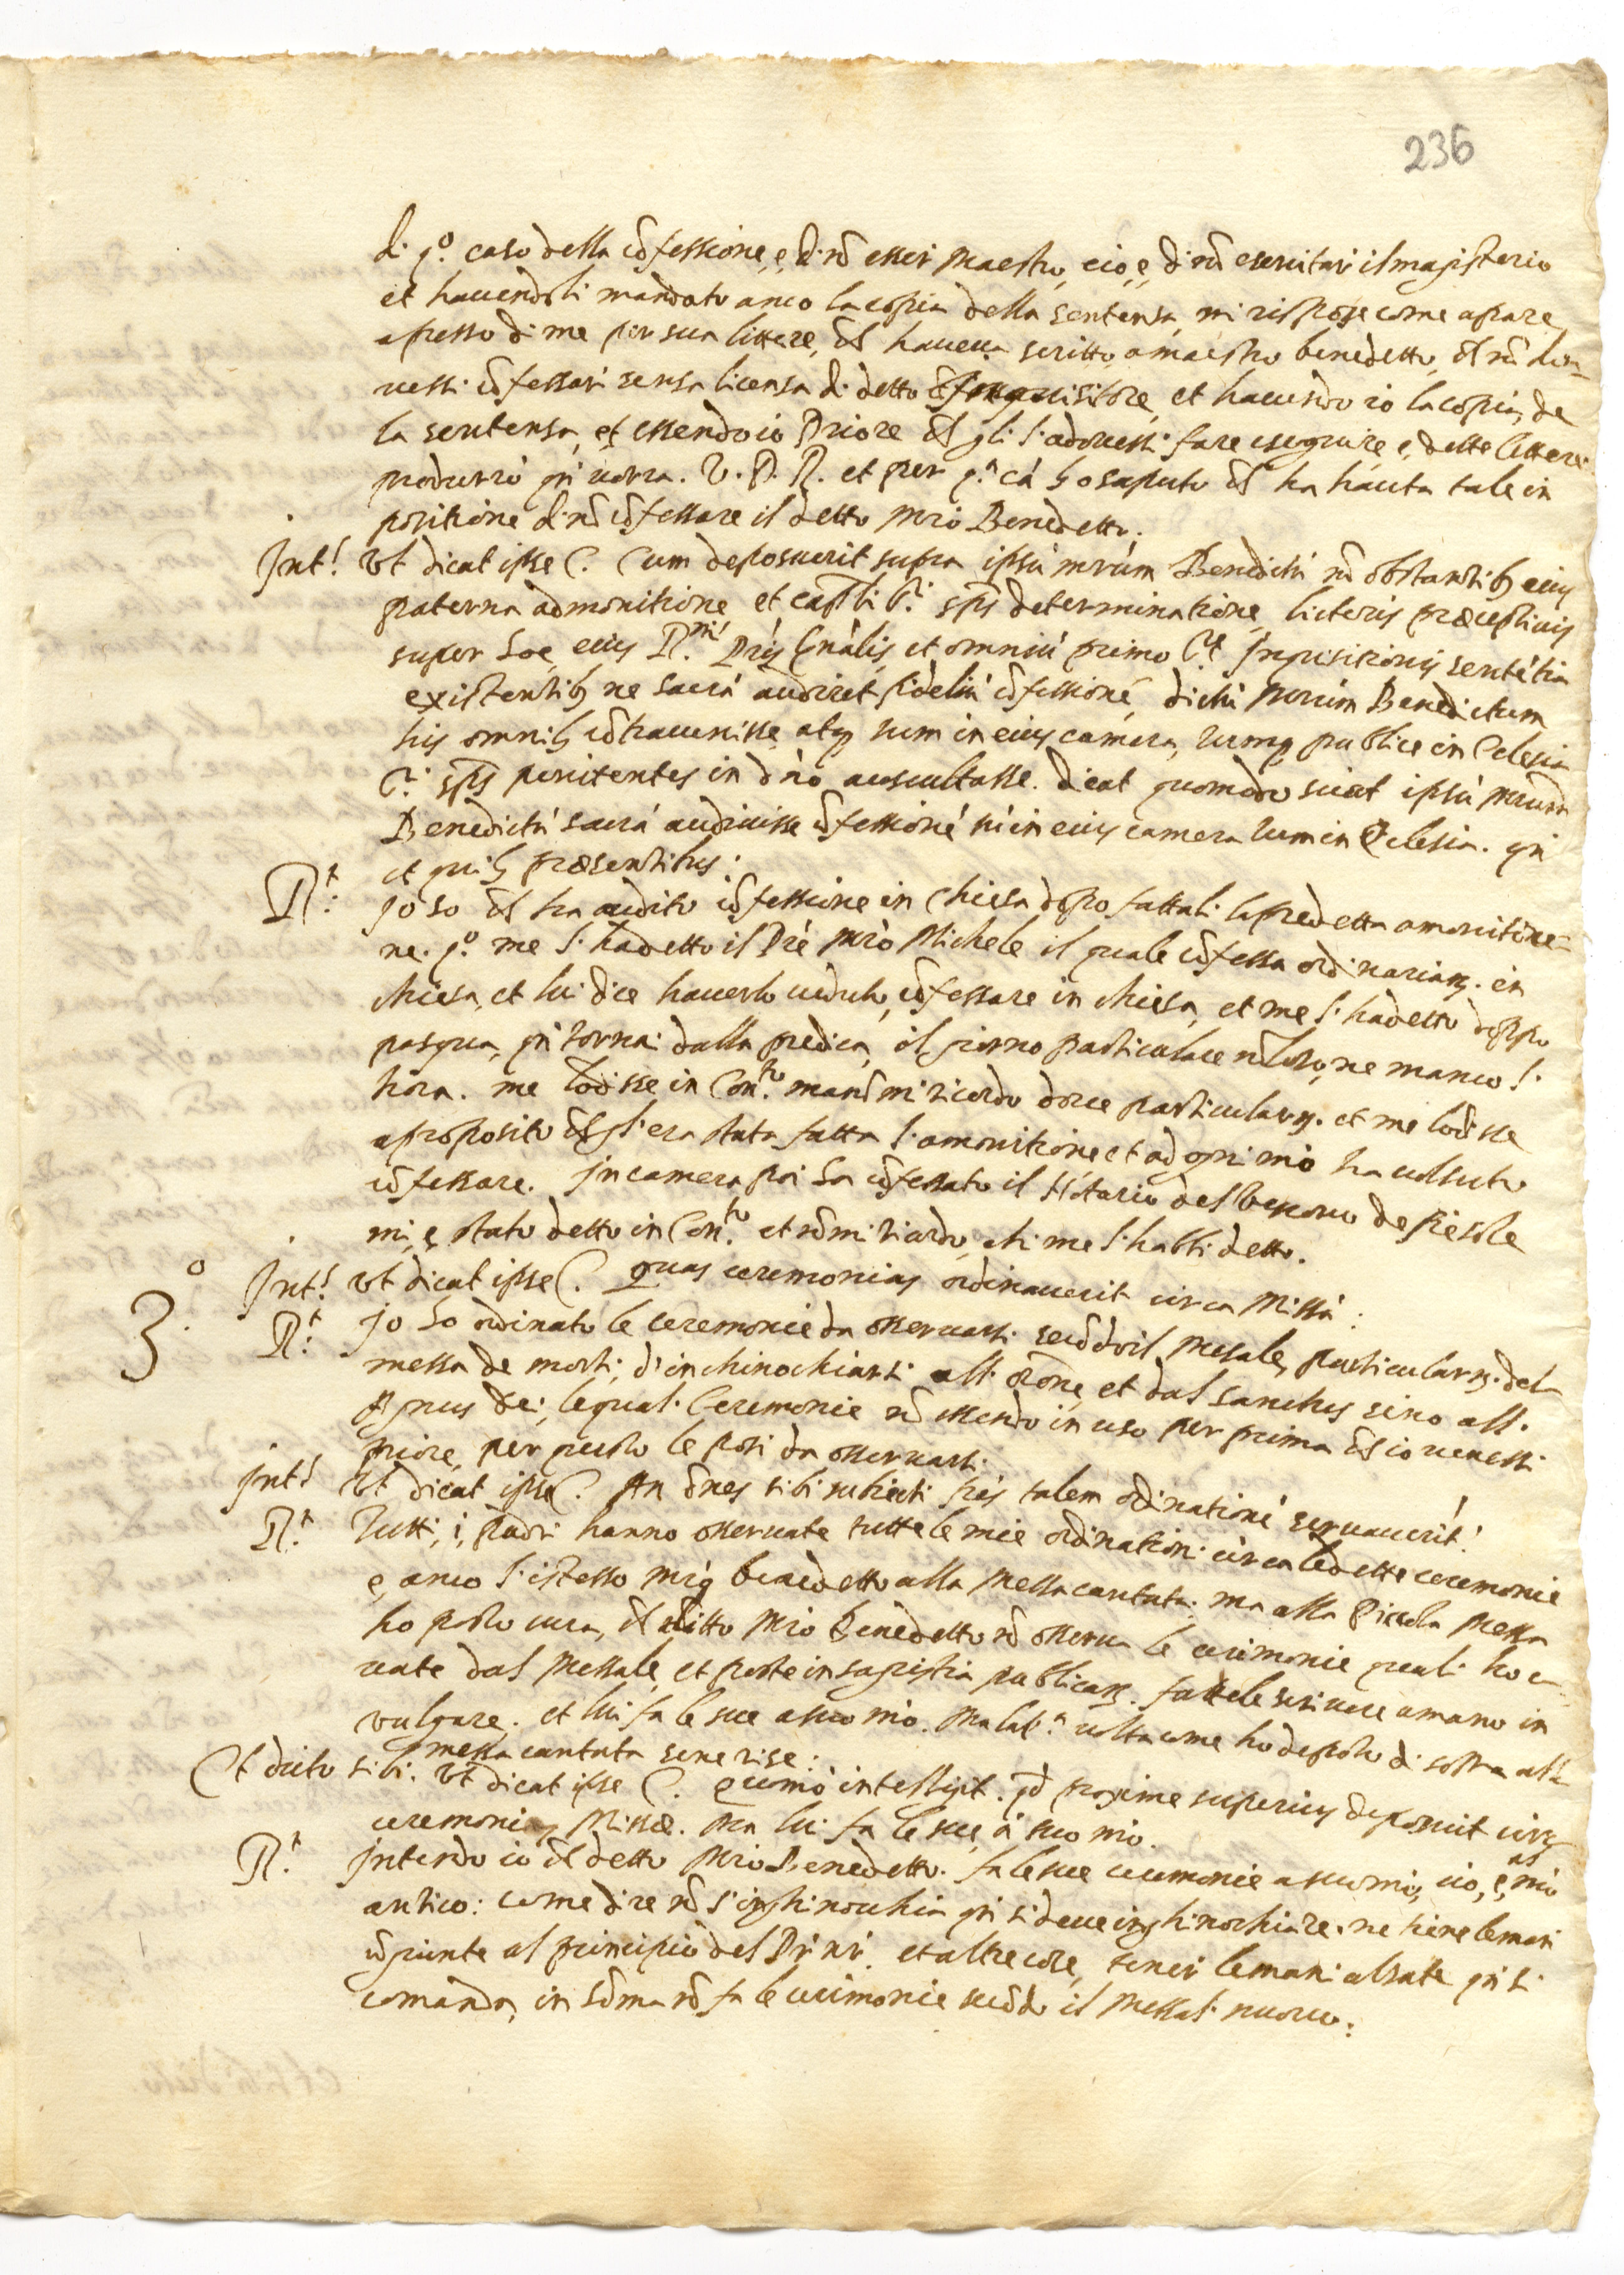 236
di q.o caso della cōfessione, e, di nō esser Maestro, cio, e, di nō esercitar il magisterio
et hauendoli mandato anco la copia della sentensa, mi rispose come apare
apresso di me per sua littere, ch̄ haueua scritto a maestro benedetto, ch̄ nō do-
uessi cōfessari sensa licensa di detto Inquisitore, et hauendo io la copia, de
la sentensa, et essendo io Priore ch̄ gli l'adouessi fare eseguire, e, dette lettere
produrrò qn̄ uorra. V. P. R. et per q.a cā ho saputo ch̄ ha hauta tale in
positione di nō cōfessare il detto Mrō Benedetto.
Int.s Vt dicat ipse C. Cum deposuerit supra ipsū mrūm Benedictū nō obstantibȝ eius
paterna admonitione, et cap̄li C.i sp̄s determinatione, licteris præceptiuis
super hoc, eius R.mi Prīs Gnālis, et omniū primo C.æ Inquisitionis sentētia
existentibȝ ne sacrā audiret fideliū cōfessionē, dictū Mrūm Benedictum
his omnibȝ cōtrauenisse, atq tum in eius camera, tumq publice in Eclesia
C.i sp̄s penitentes in d n̄o auscultasse. dicat quomodo sciat ipsū Mrūm
Benedictū sacrā audiuisse cōfessionē tū in eius camera tum in Eclesia. qn̄
et quibȝ præsentibus:
R.t Jo so ch̄ ha audito cōfessione in Chiesa dopo fattali la predetta amonitione
ne. q.o me l'ha detto il Prē Mrō Michele il quale cōfessa ordinariam. in
chiesa, et lui dice hauerlo ueduto, cōfessare in chiesa, et me l'ha detto doppo
pasqua, qn̄ torna dalla predica, il giorno particulare nō lo so, ne manco l'
hora. me lo disse in Con.to ma nō mi ricordo doue particularm. et me lo disse
aproposito ch̄ gl'era stata fatta l'amonitione et ad ogni mō ha uolsuto
cōfessare. In camera poi ha cōfessato il Notario del Vescouo de fiesole
mi, e, stato detto in Con.to et nō mi ricordo, chi me l'habbi detto.
3.o Int.s Vt dicat ipse C. quas ceremonias ordinauerit circa Missā:
R.t Jo ho ordinato le ceremonie da osseruarsi secōdo il Mesale, particularm. del
messa de morti, d'inchinochiarsi all'orōne, et dal sanctus sino all'
Agnus dei, lequali Ceremonie nō essendo in uso per prima ch̄ io uenessi
priore, per questo le posi da osseruarsi.
Int.s Vt dicat ipse C. An ōnes sibi subiecti frēs talem ordinationē seruauerīt!
R.t Tutti, i, padri hanno osseruate tutte le mie ordinationi circa le dette ceremonie
e, anco l'istesso Mrō benedetto alla Messa cantata; ma alla Piccola Messa
ho posto cura, ch̄ ditto Mrō Benedetto nō osserua le cerimonie quali ho ca-
uate dal Messale, et poste in sagristia publicam. fattele scriuere a mano in
vulgare. et lui fa le sue a suo mō. Ma la t.a uolta come ho deposto di sopra alla
messa cantata se ne rise:
Et dicto sibi. Vt dicat ipse C. quomō intelligit. qd̄ proxime superius deposuit circa
ceremonias Missæ. Ma lui fa le sue, à suo mō.
R.t Intendo io ch̄ detto Mrō Benedetto. fa le sue ceremonie a suo mō, cio, e, al mō
antico: come dire nō s'inghinocchia qn̄ si deue inghinochiare. ne tiene le mani
cōgiunte al principio del Pr̄ nr̄. et altre cose, tener le mani alsate qn̄ si
comanda, in sōma nō fa le cerimonie secōdo il Messal nuouo.